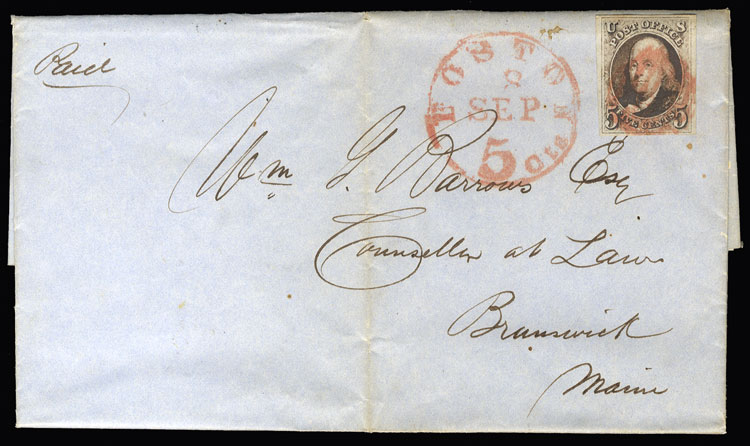 Paid
BOSTON Ms.
8
SEP
5 cts
U S
POST OFFICE
5 FIVE CENTS 5
Wm G. Barrows Esq
Counsellor at Law
Brunswick
Maine